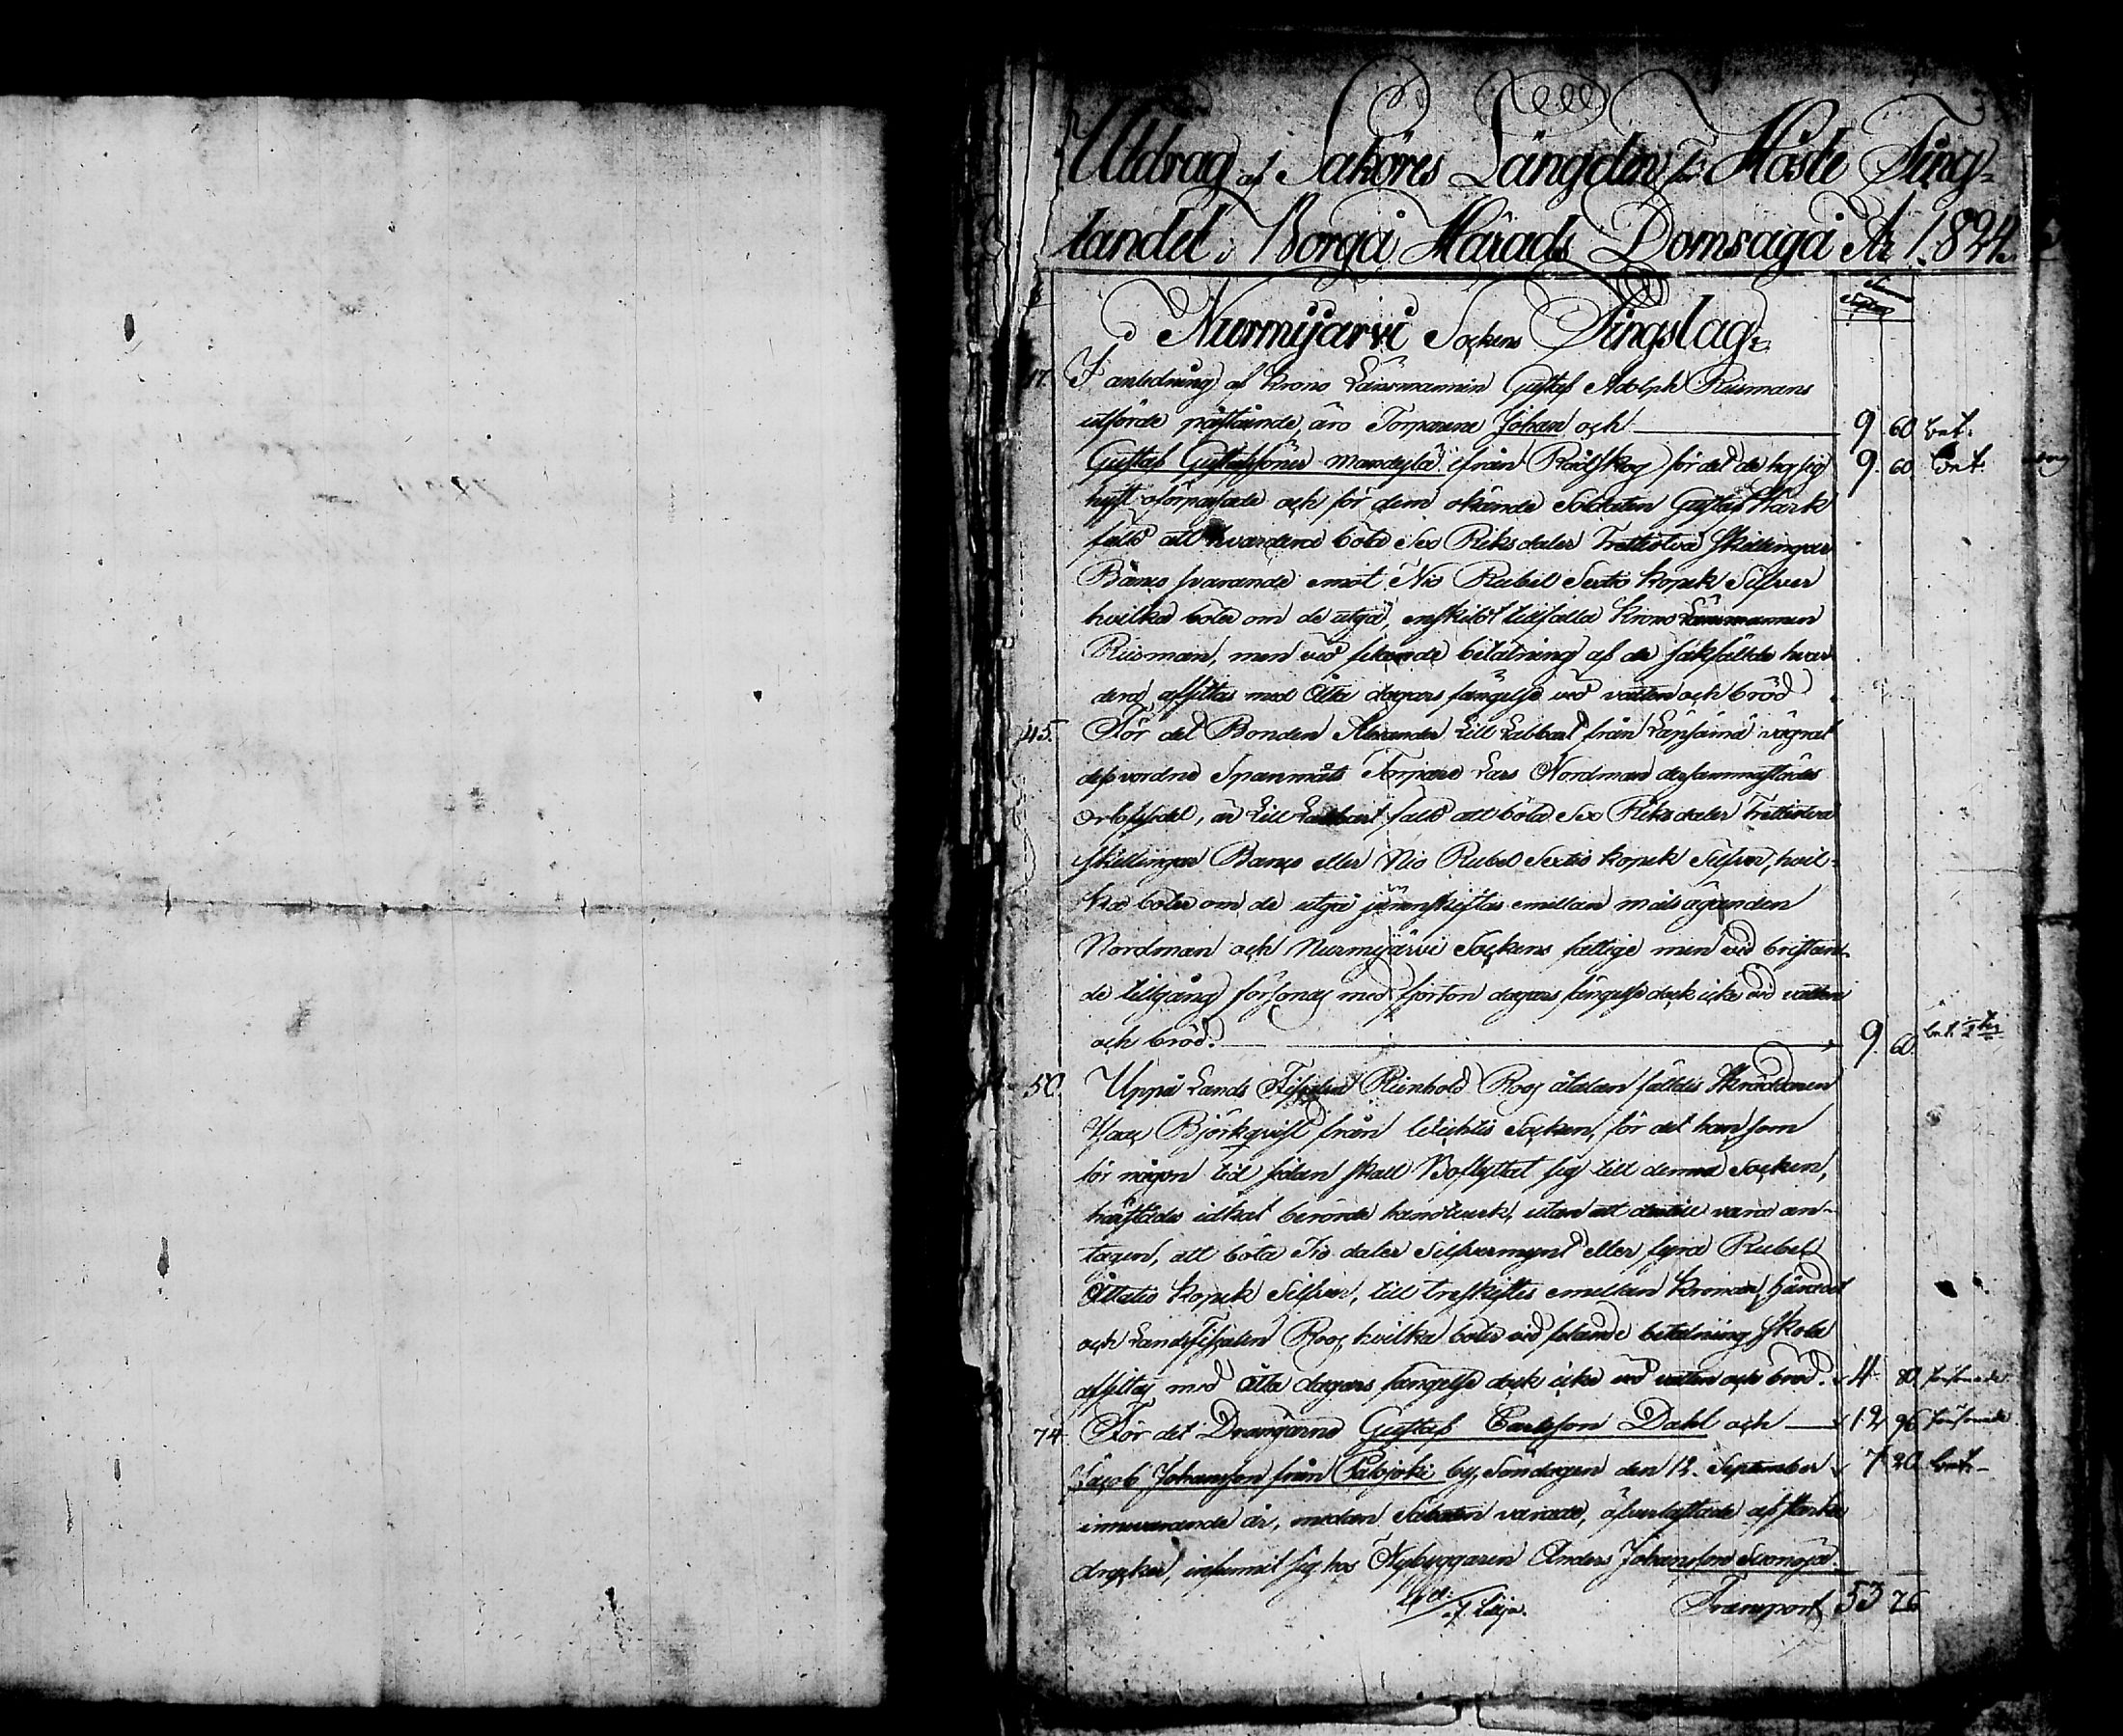 Utdrag af Saköres Längden för Höste Ting-
landet i Borgå Härads Domsaga År 1824.
§
Summa Silfver
i Nurmijärvi Sockens Tingslag:
17. I anledning af Krono Länsmannen Gustaf Adolph Reismans
utförde påstående, äro Torparene Johan och 9 60 bet.
Gustaf Gustafssöner ifrån Rådskog för det de hos sig 9. 60 bet.
hyst oförpassade och för dem okände Soldaten Gustaf Stark
fälte att hvardera böta Sex Riksdaler Trettiotvå skillingar
Banco svarande emot Nio Rubel Sextio kopek Silfver
hvilka böter om de utgå, enskildt tillfalla Krono Länsmannen
Reisman, men vid felande betalning af de sakfälde hvar-
dera afsittas med Åtta dagars fängelse vid vatten och bröd
45. För det Bonden Alexander Lill Labbart från Lepsämä vägrat
dess vordne Spanmåls Torpare Lars Nordman dersammastädes
Orlofssedel, är Lill Labbart fäld att böta Sex Riksdaler Trettiotvå
skillingar Banco eller Nio Rubel Sextio kopek Silfver, hvil-
ka böter om de utgå jämnskiftas emellan målsäganden
Nordman och Nurmijärvi Sockens fattige men vid bristan-
de tillgång försonas med fjorton dagars fängelse dock icke vid vatten
och bröd. 9. 60. bet.
50. Uppå Lands Fiskalen Reinhold Roos åtalan fälldes Skräddaren
Isac Björkqvist från Wichtis Socken, för det han som
för någon tid sedan skall Boflyttat sig till denna Socken,
härstädes idkat berörde handtverk, utan att dertill vara an-
tagen, att böta Tio daler Silfvermynt eller fyra Rubel
Åttatio kopek Silfver, till treskiftes emellan Kronan, Häradet
och Landsfiskalen Roos, hvilka böter vid felande betalning skola
afsittas med åtta dagars fängelse dock icke vid vatten och bröd. 4 80. försonade
74 För det Drängarne Gustaf Carlsson Dahl och 12 96 försonade
Jacob Johansson från Palojoki by, Söndagen den 12. September 7 20 bet.
innevarande år, medan Sabaten varade, öfverlastade af starka
drycker, infunnit sig hos Nybyggaren Anders Johansson
Transport 53 76